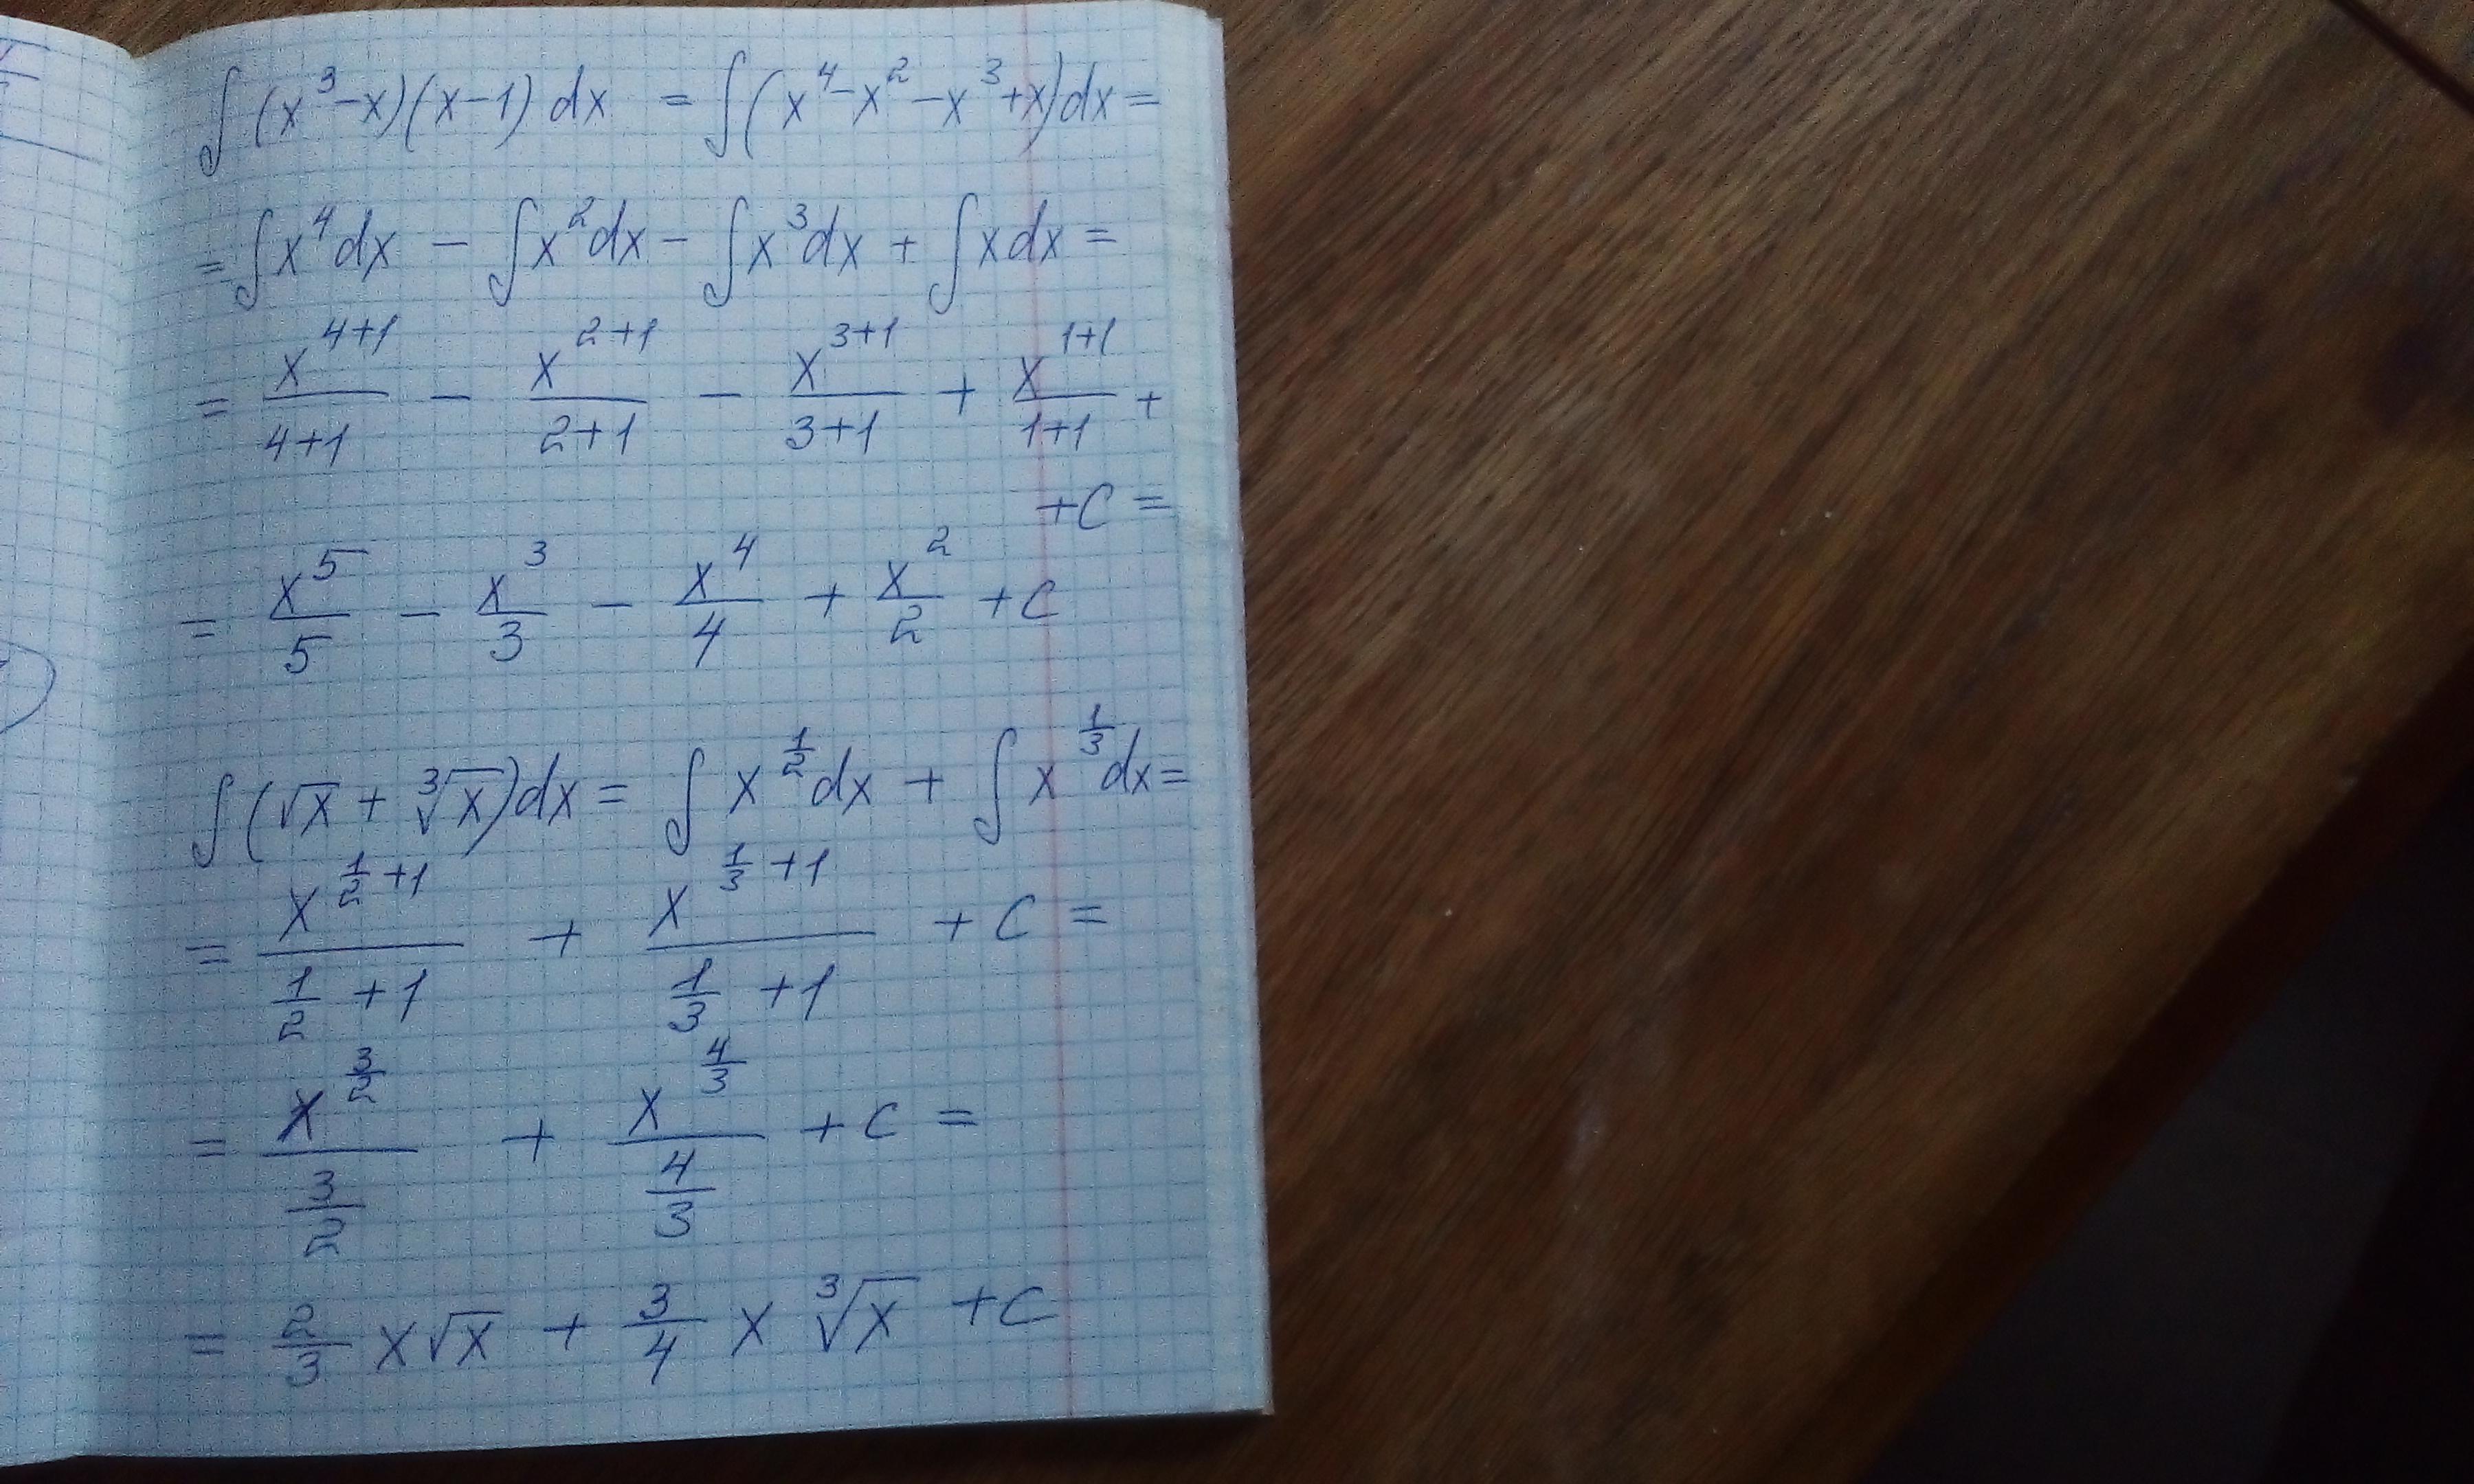 ∫(x³−x)(x−1)dx = ∫(x⁴−x²−x³+x)dx =
= ∫x⁴dx − ∫x²dx − ∫x³dx + ∫xdx =
= x^(4+1)/(4+1) − x^(2+1)/(2+1) − x^(3+1)/(3+1) + x^(1+1)/(1+1) +
+C =
= x⁵/5 − x³/3 − x⁴/4 + x²/2 + C
∫(√x + ∛x)dx = ∫x^(1/2)dx + ∫x^(1/3)dx =
= x^(1/2+1)/(1/2+1) + x^(1/3+1)/(1/3+1) + C =
= x^(3/2)/(3/2) + x^(4/3)/(4/3) + C =
= 2/3 x√x + 3/4 x ∛x + C